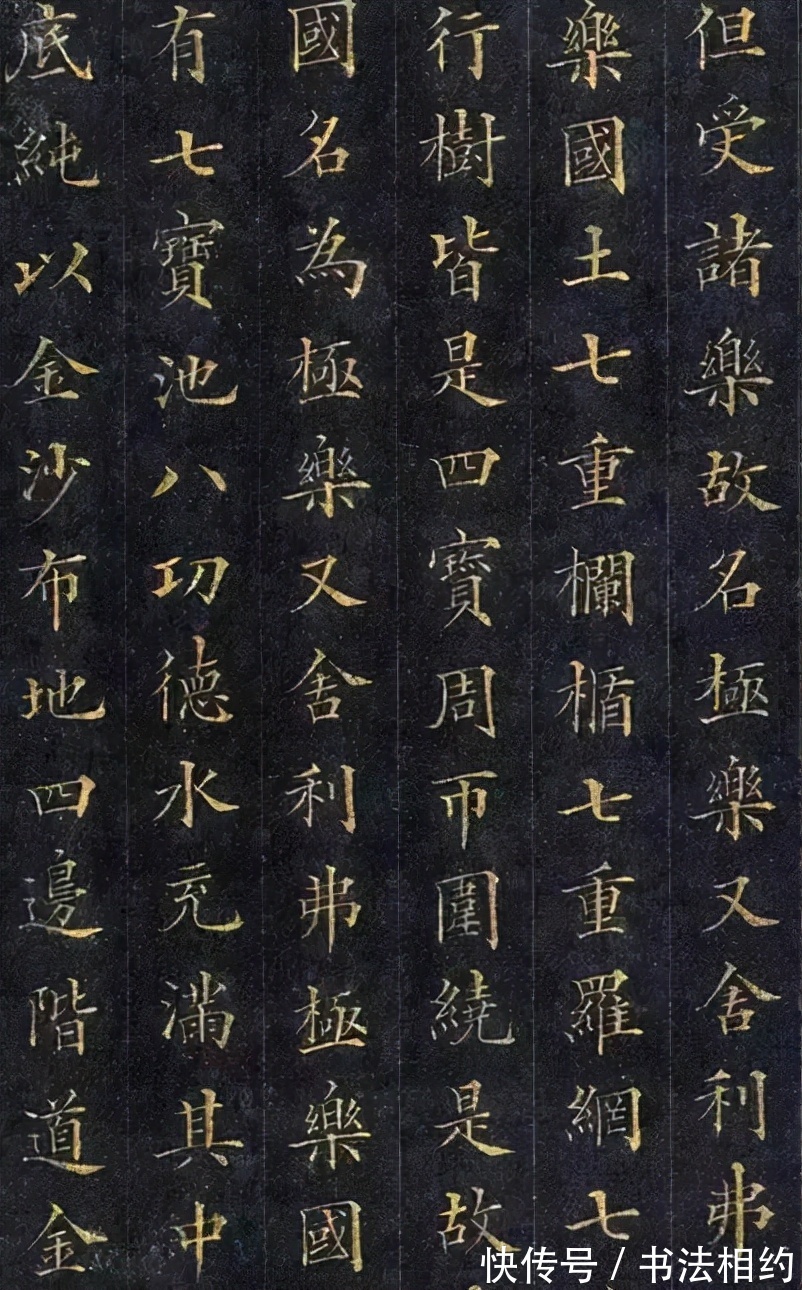 但受諸樂故名極樂又舍利弗
樂國土七重欄楯七重羅網七
行樹皆是四寶周帀圍繞是故
國名為極樂又舍利弗極樂國
有七寶池八功德水充滿其中
底純以金沙布地四邊階道金
快传号 / 书法相约